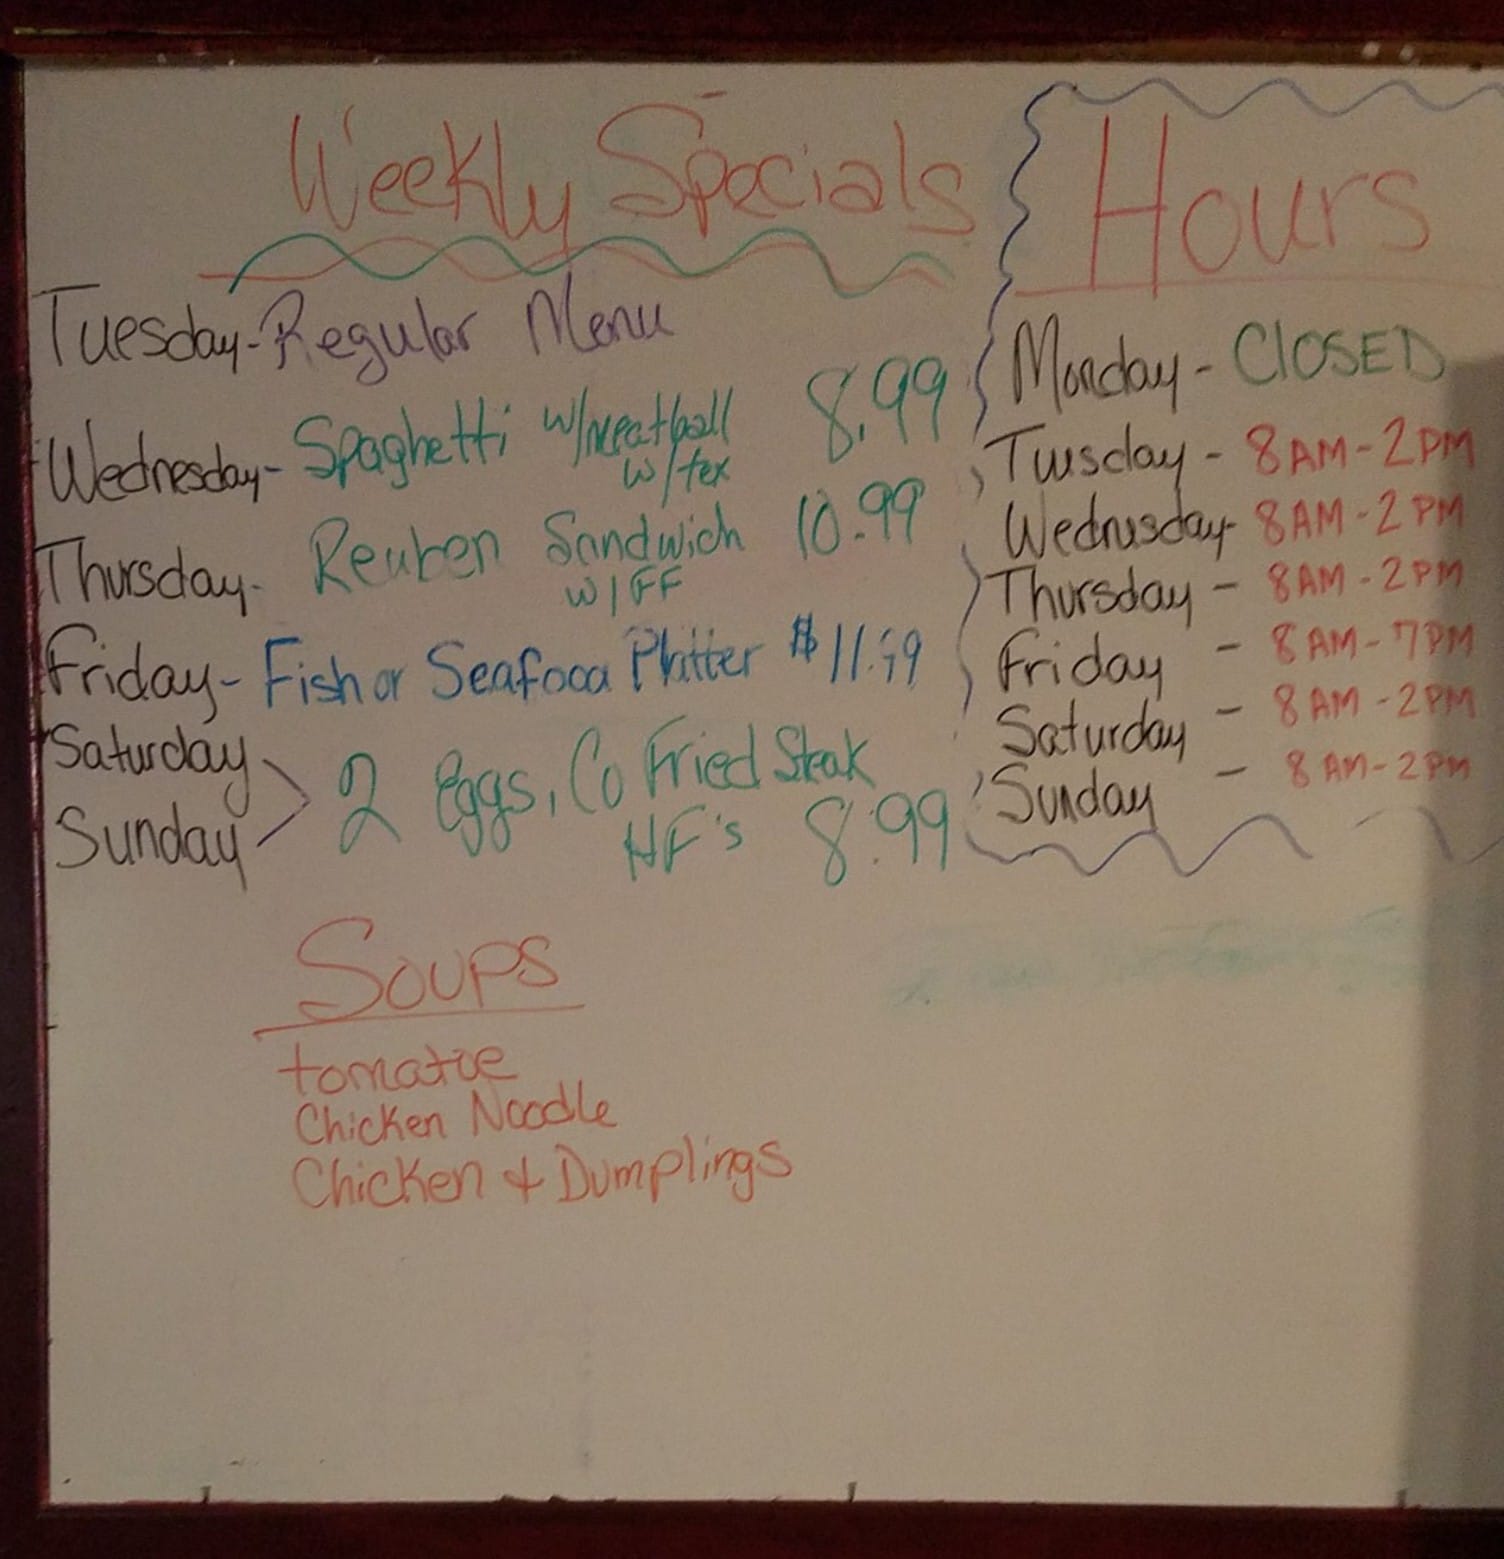 Weekly Specials
Tuesday-Regular Menu
Wednesday- Spaghetti w/meatball 8.99
w/tex
Thursday- Reuben Sandwich 10.99
w/FF
Friday- Fish or Seafood Platter $11.99
Saturday
Sunday
2 Eggs, Co Fried Steak
HF's 8.99
Soups
tomatoe
Chicken Noodle
Chicken & Dumplings
Hours
Monday- CLOSED
Tuesday- 8AM-2PM
Wednesday- 8AM-2PM
Thursday- 8AM-2PM
Friday - 8AM-7PM
Saturday - 8AM-2PM
Sunday - 8AM-2PM